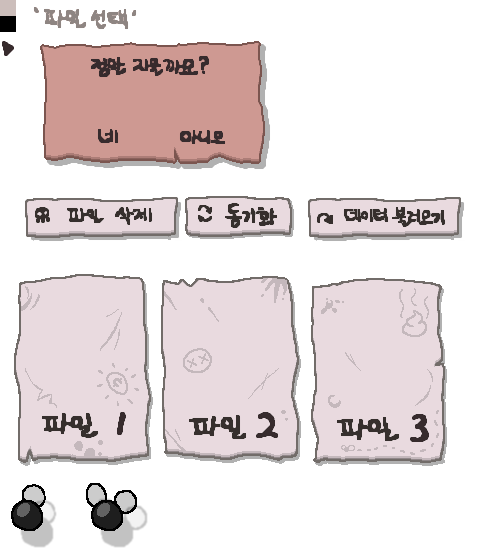 '파일 선택'
정말 지울까요?
네 아니오
파일 삭제 동기화 데이터 불러오기
파일 1 파일 2 파일 3